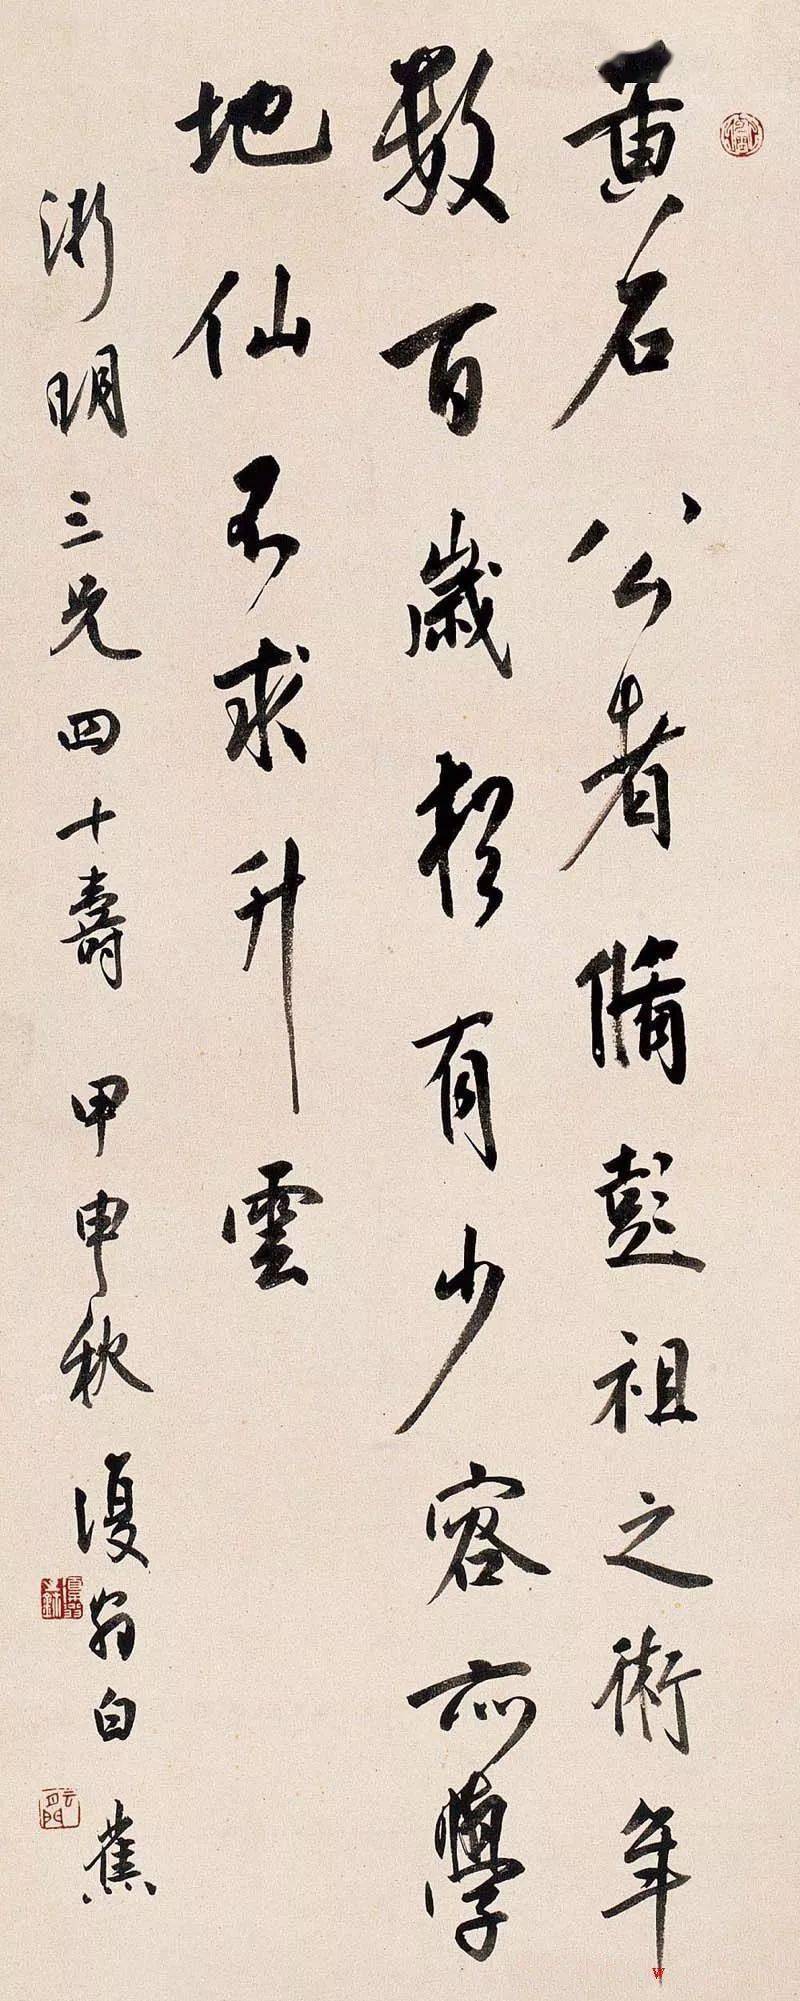 黄石公者脩彭祖之術年
數百歲猶有少容亦學
地仙不求升雲
明三兄四十壽 甲申秋 復翁白蕉
云間
W